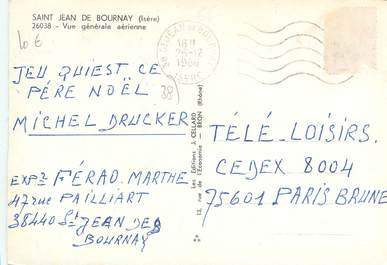 SAINT JEAN DE BOURNAY (Isère)
26038 - Vue générale aérienne
10 €
18H
26-12
1986
ISERE
JEU QUIEST CE
PÉRE NOËL
38
MICHEL DRUCKER
Les Editions J. CELLARD
12, rue de l'Economie — BRON (Rhône)
TÉLÉ-LOISIRS.
CEDEX 8004
75601 PARIS BRUNE
EXPR FÉRAD. MARTHE
47 rue PAILLIART
38440 St JEAN DE
BOURNAY